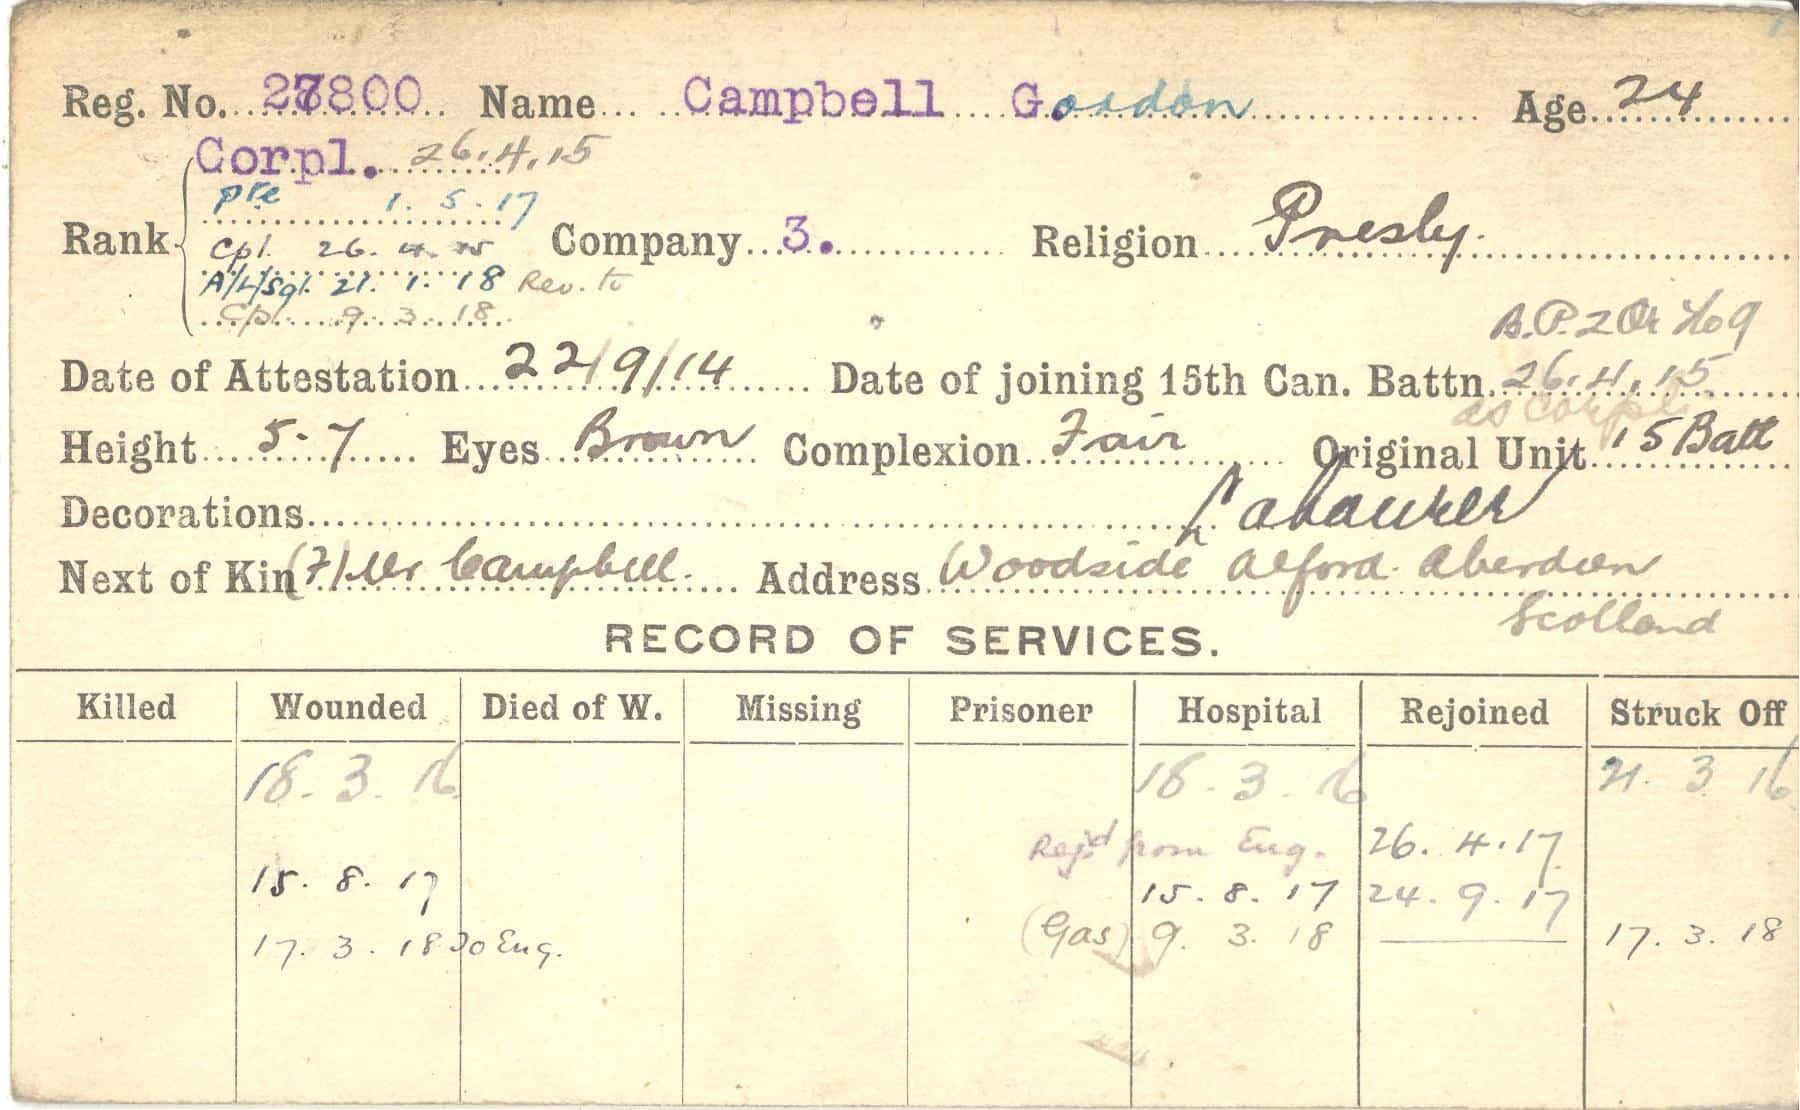 Reg. No. 27800 Name Campbell Gordon Age 24
Corpl. 26.4.15
Pte 1.5.17
Rank Cpl. 26.4.15 Company 3. Religion Presby.
A/L/Sgt. 21.1.18 Rev. to
Cpl 9.3.18
B.P.2 Or 409
Date of Attestation 22/9/14 Date of joining 15th Can. Battn. 26.4.15
as Corpl.
Height 5-7 Eyes Brown Complexion Fair Original Unit 15 Batt
Decorations Labourer
Next of Kin (F) Mr Campbell. Address Woodside Alford. Aberdeen
Scotland
RECORD OF SERVICES.
Killed Wounded Died of W. Missing Prisoner Hospital Rejoined Struck Off
18.3.16 18.3.16 21.3.16
Rej'd from Eng. 26.4.17
15.8.17 15.8.17 24.9.17
17.3.18 To Eng. (Gas) 9.3.18 — 17.3.18